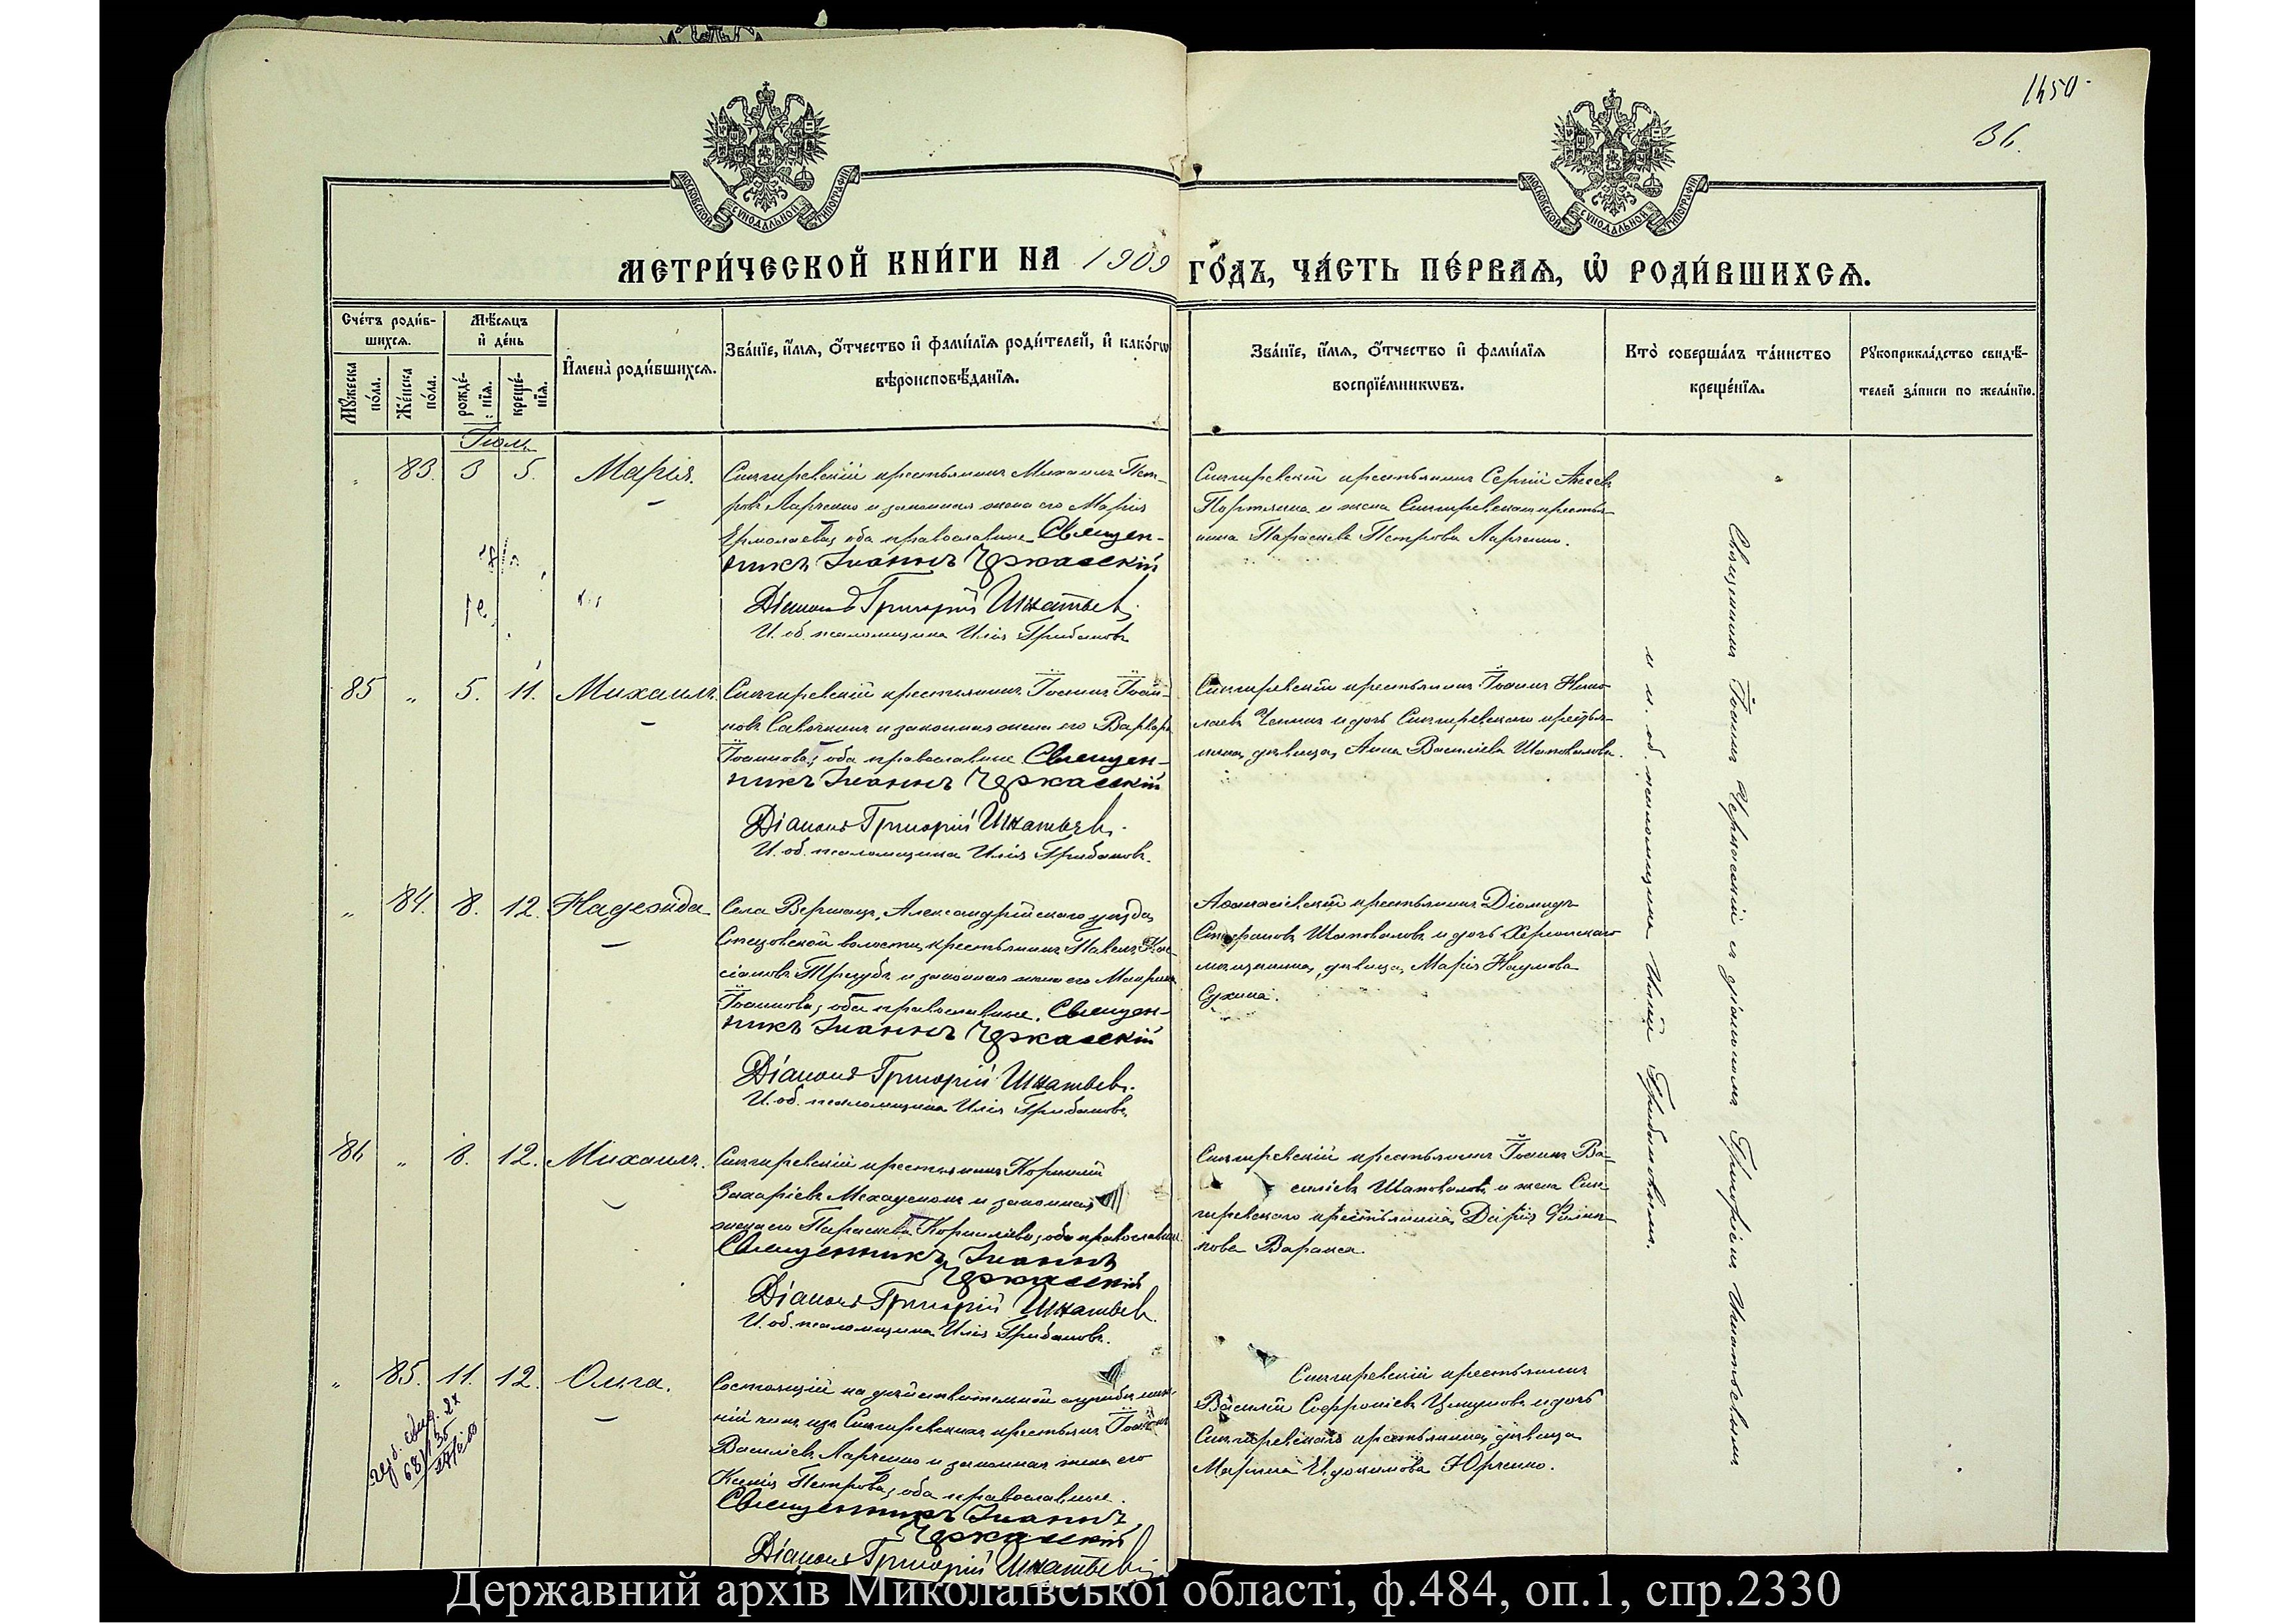 1450
36.
МОСКОВСКОЙ СУНОДАЛЬНОЙ ТИПОГРАФІИ
МОСКОВСКОЙ СУНОДАЛЬНОЙ ТИПОГРАФІИ
МЕТРИ́ЧЕСКОЙ КНИ́ГИ НА 1909 ГО́ДЪ, ЧА́СТЬ ПЕ́РВАЯ, Ѽ РОДИ́ВШИХСЯ.
Сче́тъ роди́вшихся.
Мꙋ́жеска по́ла.
Же́нска по́ла.
Мѣ́сяцъ и҆ де́нь
рожде́нїя.
креще́нїя.
И҆мена̀ роди́вшихся.
Зва́нїе, и҆́мя, ѻ҆́тчество и҆ фами́лїя роди́телей, и҆ како́гѡ
вѣроисповѣ́данїя.
Зва́нїе, и҆́мя, ѻ҆́тчество и҆ фами́лїя
воспрїе́мникѡвъ.
Кто̀ соверша́лъ та́инство
креще́нїя.
Рꙋкоприкла́дство свидѣ́-
телей за́писи по жела́нїю.
Іюль.
83. 3 5. Марія.
Снигиревскій крестьянинъ Михаилъ Пет-
ровъ Ларченко и законная жена его Марія
Ермолаева, оба православные. Священ-
никъ Іоаннъ Черкасскій
Діаконъ Григорій Игнатьев
И. об. псаломщика Илія Грибановъ
Снигиревскій крестьянинъ Сергій
и жена Снигиревскаго крестья-
нина Параскева Петрова Ларченко.
85 „ 5. 11. Михаилъ.
Снигиревскій крестьянинъ Іоаннъ Іоан-
новъ Савочкинъ и законная жена его Варвара
Іоаннова, оба православные. Священ-
никъ Іоаннъ Черкасскій
Діаконъ Григорій Игнатьевъ.
И. об. псаломщика Илія Грибановъ.
Снигиревскій крестьянинъ Іоаннъ Нико-
лаевъ и дочь Снигиревскаго крестья-
нина, дѣвица, Анна Василіева Шаповалова.
„ 84. 8. 12. Надежда
Села Вершацъ, Александрійскаго уѣзда,
волости, крестьянинъ Павелъ Кас-
сіановъ и законная жена его
Іоаннова, оба православные. Священ-
никъ Іоаннъ Черкасскій
Діаконъ Григорій Игнатьевъ.
И. об. псаломщика Илія Грибановъ.
Афанасіевскій крестьянинъ Діомидъ
Стефановъ Шаповаловъ и дочь Херсонскаго
мѣщанина, дѣвица, Марія Наумова
Сухина.
86 „ 8. 12. Михаилъ.
Снигиревскій крестьянинъ Корнилій
Захаріевъ и законная
жена его Параскева Корниліева, оба православные.
Священникъ Іоаннъ
Черкасскій
Діаконъ Григорій Игнатьев.
И. об. псаломщика Илія Грибановъ.
Снигиревскій крестьянинъ Іоаннъ Ва-
силіевъ Шаповаловъ и жена Сни-
гиревскаго крестьянина Дарія Филип-
пова
„ 85. 11. 12. Ольга.
Состоящій на дѣйствительной службѣ ниж-
ній чинъ изъ Снигиревскихъ крестьянъ Іоаннъ
Василіевъ Ларченко и законная жена его
Ксенія Петрова, оба православные.
Священникъ Іоаннъ
Черкасскій
Діаконъ Григорій Игнатьевъ
Снигиревскій крестьянинъ
Василій Софроніевъ и дочь
Снигиревскаго крестьянина, дѣвица
Марина Евдокимова Юрченко.
Священникъ Іоаннъ Черкасскій съ діакономъ Григоріемъ Игнатьевымъ
и и. об. псаломщика Иліей Грибановымъ.
Державний архів Миколаївської області, ф.484, оп.1, спр.2330